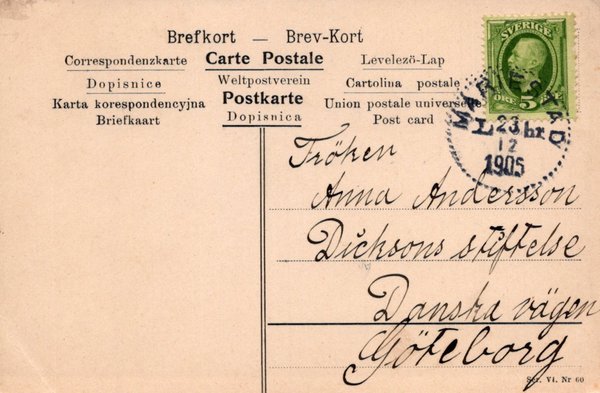 Brefkort — Brev-Kort
Correspondenzkarte Carte Postale Levelezö-Lap
Dopisnice Weltpostverein Cartolina postale
Karta korespondencyjna Postkarte Union postale universelle
Briefkaart Dopisnica Post card
SVERIGE
ÖRE 5
MARIESTAD
L. 23 br
12
1905
Fröken
Anna Andersson
Dicksons stiftelse
Danska vägen
Göteborg
Ser. Vi. Nr 60